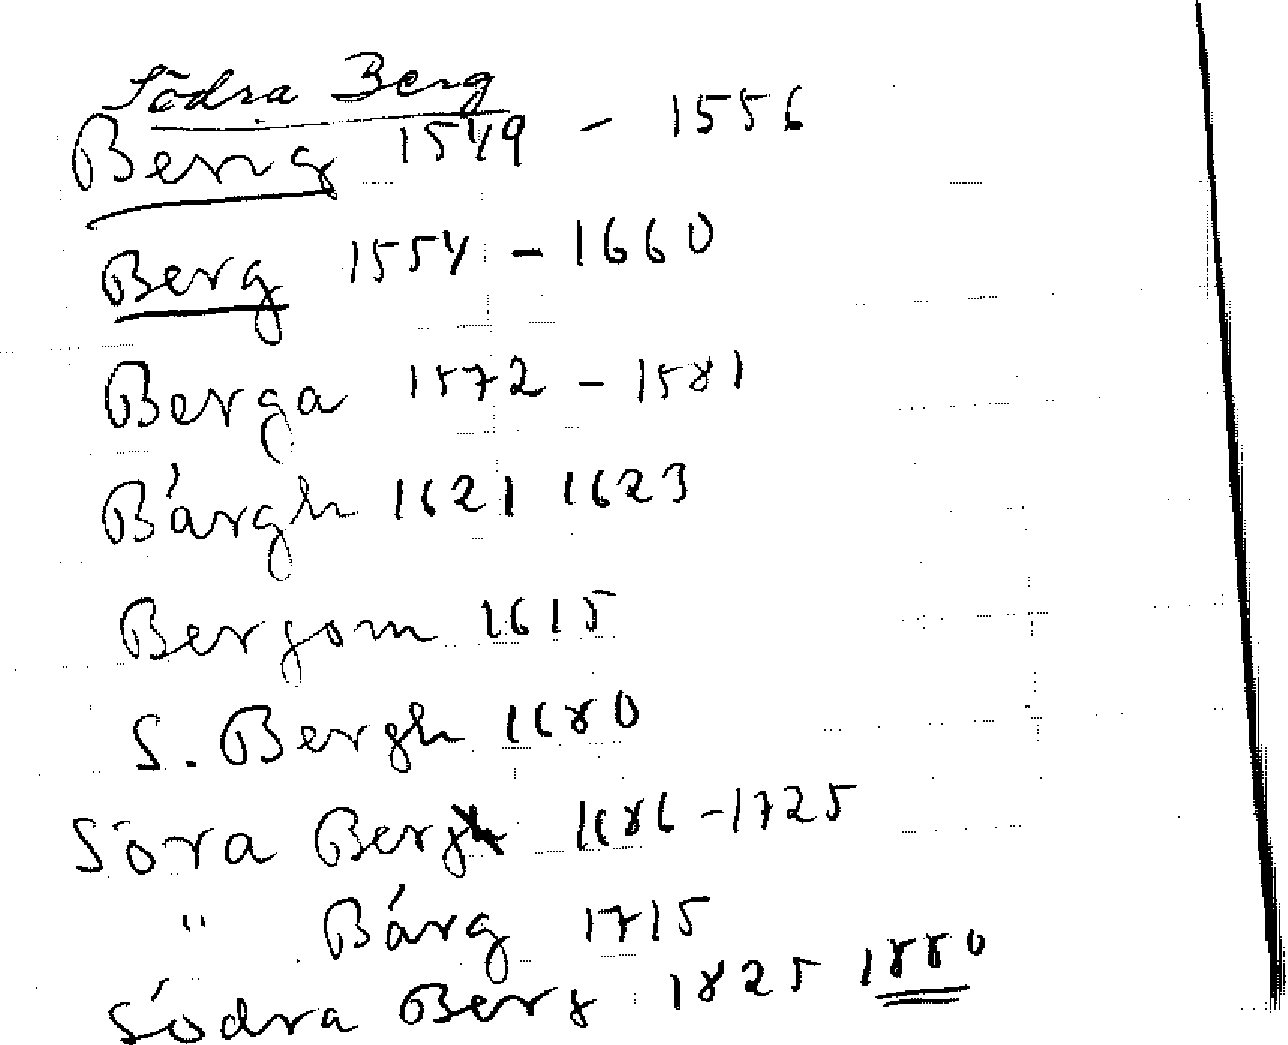 Södra Berg
Berg 1549 - 1556
Berg 1554 - 1660
Berga 1572 - 1581
Bárgh 1621 1623
Bergom 1615
S. Bergh 1680
Söra Berg 1686 - 1725
" Bárg 1715
Södra Berg 1825 1880